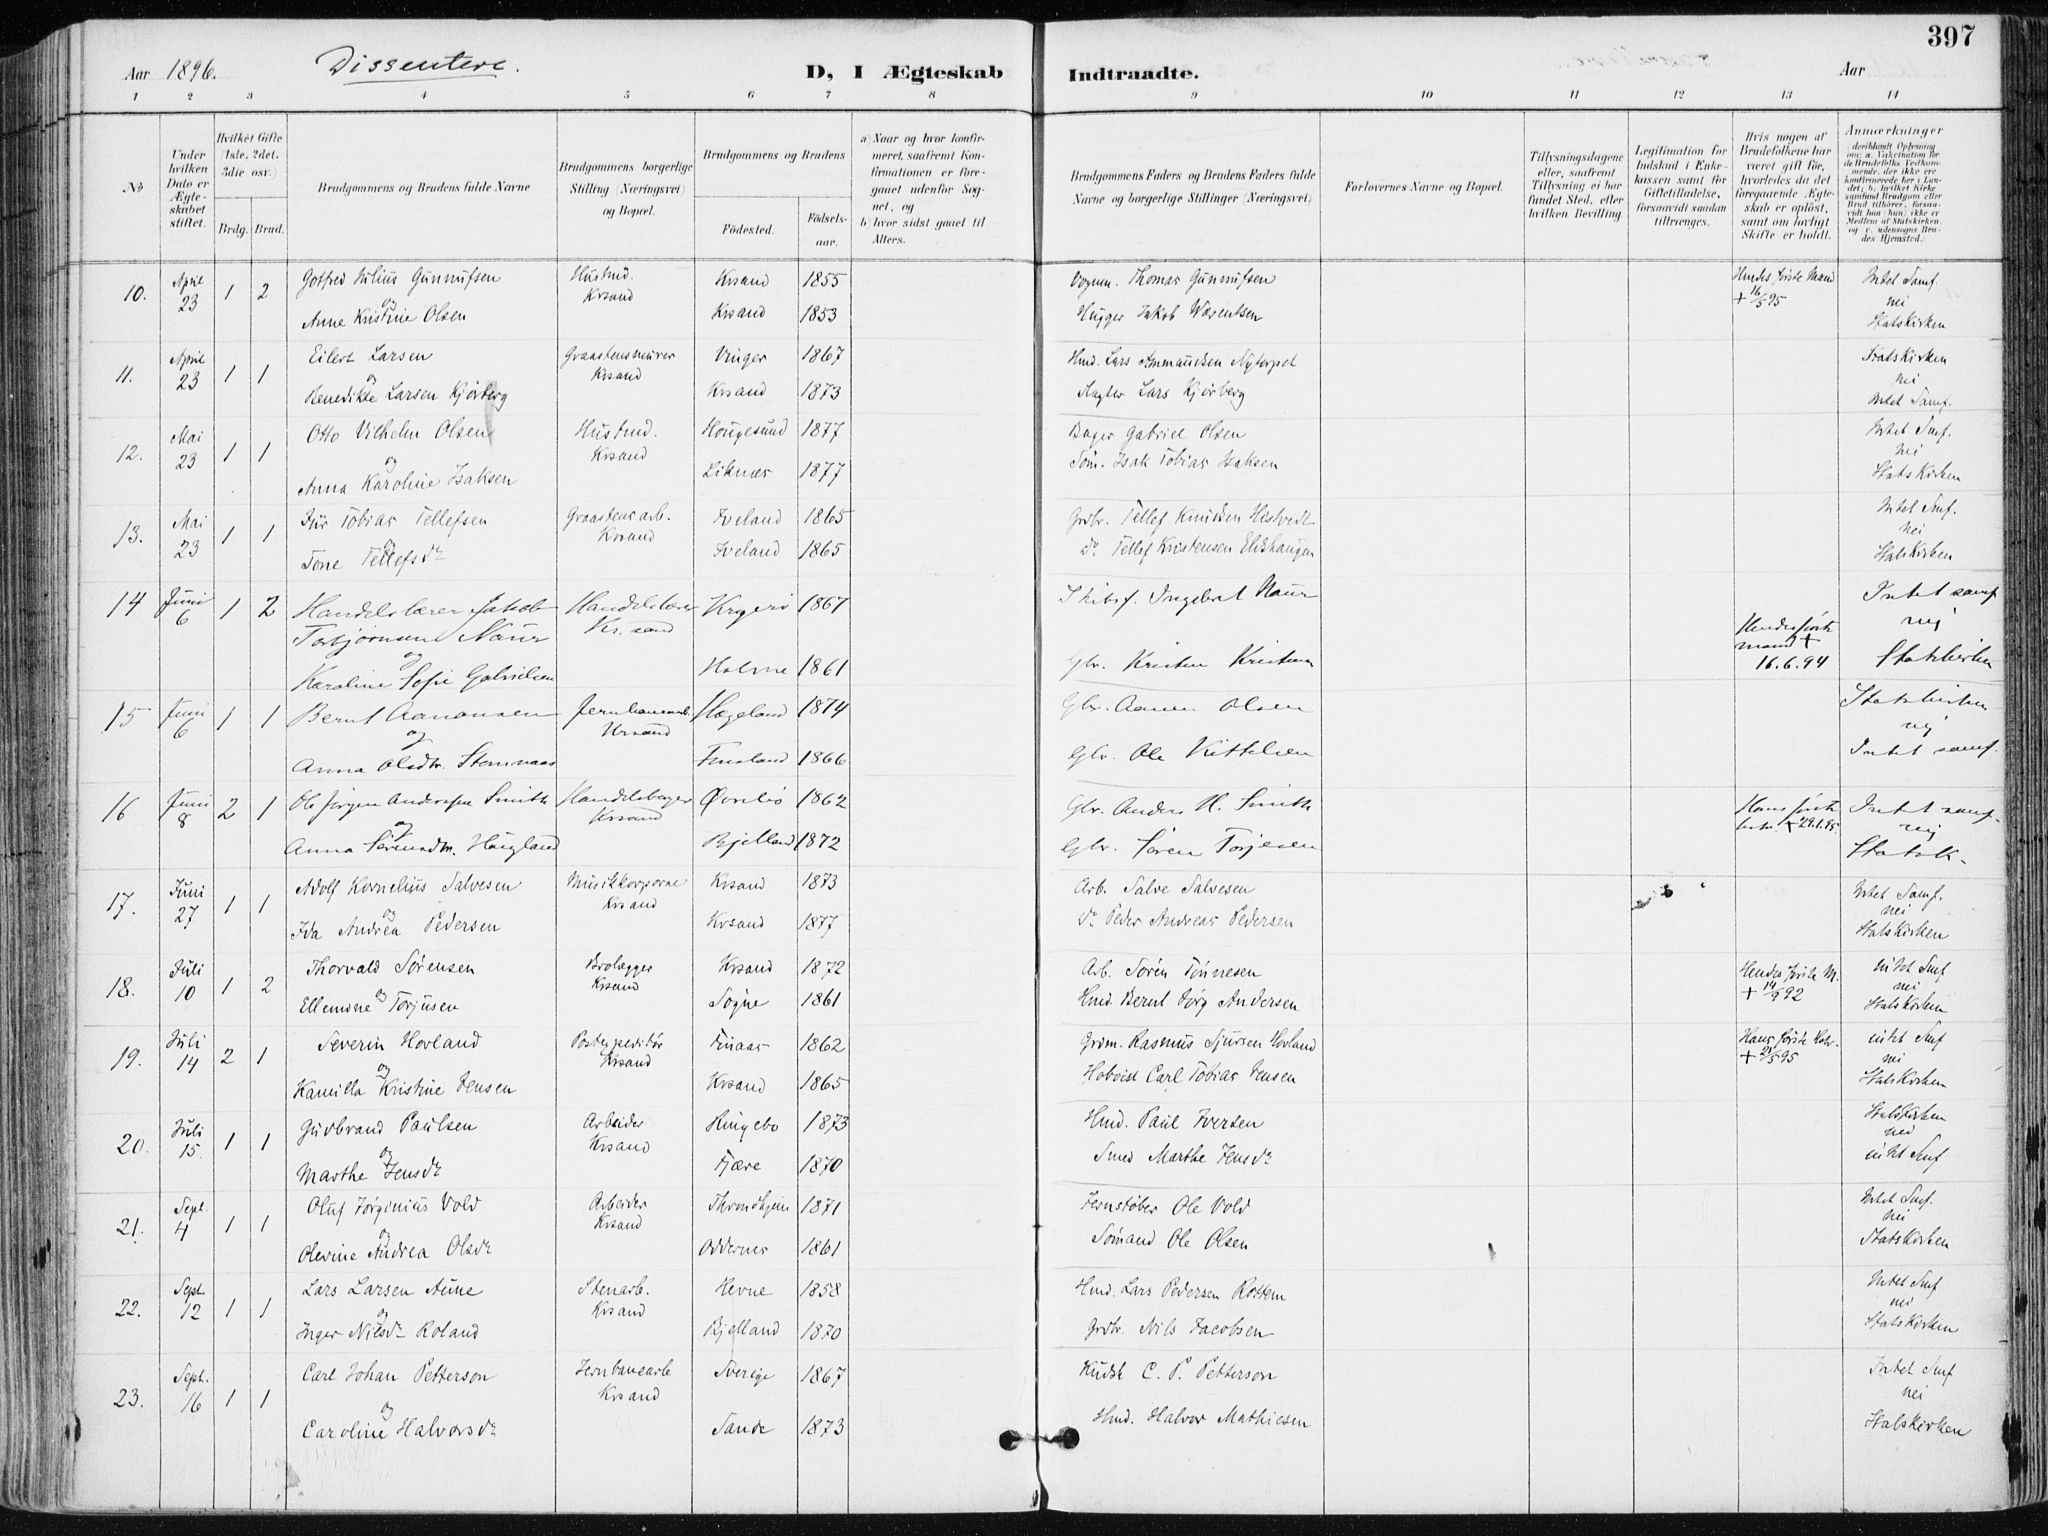 397
Aar 1896. Dissentere. D, I Ægteskab Indtraadte. Aar
1 2 3 4 5 6 7 8 9 10 11 12 13 14
No
Under hvilken Dato er Ægteskabet stiftet.
Hvilket Gifte (1ste, 2det, 3die osv.)
Brdg. Brud.
Brudgommens og Brudens fulde Navne
Brudgommens borgerlige Stilling (Næringsvei) og Bopæl.
Brudgommens og Brudens
Födested. Födsels-aar.
a) Naar og hvor konfirmeret, saafremt Konfirmationen er foregaaet udenfor Sognet, og
b) hvor sidst gaaet til Alters.
Brudgommens Faders og Brudens Faders fulde Navne og borgerlige Stillinger (Næringsvei)
Forlovernes Navne og Bopæl.
Tillysningsdagene eller, saafremt Tillysning ei har fundet Sted, efter hvilken Bevilling.
Legitimation for Indskud i Enkekassen samt for Giftetilladelse, forsaavidt saadan tiltrænges.
Hvis nogen af Brudefolkene har været gift før, hvorledes da det foregaaende Ægteskab er opløst, samt om lovligt Skifte er holdt.
Anmærkninger (deriblandt Oplysning om: a. Vakcination for de Brudefolks Vedkommende, der ikke ere konfirmerede her i Landet; b. hvilket Kirkesamfund Brudgom eller Brud tilhører, forsaavidt han (hun) ikke er Medlem af Statskirken, og c. udensogns Brudes Hjemsted.)
10. April 23 1 2 Gotfred Julius Gunnufsen Hustmd. Krsand Krsand 1855 Vognm. Thomas Gunnufsen Hendes første Mand + 16/5 95 Intet Samf.
og nei
Anne Kristine Olsen Krsand 1853 Hugger Jakob Warentsen Statskirken
11. April 23 1 1 Eilert Larsen Graastensmurer Krsand Vinger 1867 Hmd. Lars Ammundsen Nytorpet Statskirken
og nei
Benedikte Larsen Kjørberg Krsand 1873 Lars Kjørberg Intet Samf.
12. Mai 23 1 1 Otto Vilhelm Olsen Hustmd. Krsand Hougesund 1877 Bager Gabriel Olsen Intet Smf.
og nei
Anna Karoline Isaksen Liknær 1877 Søm. Isak Tobias Isaksen Statskirken
13. Mai 23 1 1 Tobias Tellefsen Graastensarb. Krsand Iveland 1865 Grdbr. Tellef Knudsen Intet Smf.
og nei
Tone Tellefsdr Iveland 1865 Do Tellef Kristensen Statskirken
14 Juni 6 1 2 Handelslærer Jakob Handelslærer Kr.sand Kragerø 1867 Skibsf. Ingebret Naur Intet samf
Torbjørnsen Naur nej
og Hendes første mand + 16.6.94
Karoline Sofie Gabrielsen Holme 1861 Gbr. Kristen Kristensen Statskirken
15 Juni 6 1 1 Bernt Aanonsen Jernbanearb. Krsand Hægeland 1874 Gbr. Aanen Olsen Statskirken
og nej
Anna Olsdtr. Stemnaas Finsland 1866 Gbr. Ole Kittelsen Intet samf.
16 Juni 8 2 1 Ole Jørgen Andersen Smith Handelsbager Krsand Øvrebø 1862 Gbr. Anders H. Smith Hans første hstr. + 29.1.95. Intet samf.
og nej
Anna Sørensdtr. Haugland Bjelland 1872 Gbr. Søren Torjesen Statsk.
17. Juni 27 1 1 Adolf Kornelius Salvesen Musikkorporal Krsand Krsand 1873 Arb. Salve Salvesen Intet Samf.
og nei
Ida Andrea Pedersen Krsand 1877 Do Peder Andreas Pedersen Statskirken
18. Juli 10 1 2 Thorvald Sørensen Brolægger Krsand Krsand 1872 Arb. Søren Tønnesen Hendes første M. + 14/9 92 intet Smf
og nei
Ellemone Torjusen Sogne 1861 Hmd. Bernt Jørg Andersen Statskirken
19. Juli 14 2 1 Severin Hovland Postexpeditør Krsand Finaas 1862 Grdm. Rasmus Sjursen Hovland Hans første Hstr. + 21/5 95 intet Smf
og nei
Kamilla Kristine Jensen Krsand 1865 Hoboist Carl Tobias Jensen Statskirken
20. Juli 15. 1 1 Gudbrand Paulsen Arbeider Krsand Ringebo 1873 Hmd. Paul Iversen Statskirken
og nei
Marthe Jensdr Fjære 1870 Smed Marthe Jensdr intet Smf
21. Sept. 4 1 1 Oluf Jørginius Vold Arbeider Krsand Throndhjem 1871 Jernstøber Ole Vold Intet Smf.
og nei
Olevine Andrea Olsdr Oddernes 1861 Sømand Ole Olsen Statskirken
22. Sept. 12 1 1 Lars Larsen Aune Stenarb. Krsand Hevne 1858 Hmd. Lars Pedersen Rottem Intet Smf
og nei
Inger Nilsdr Roland Bjelland 1870 Grdbr. Nils Jacobsen Statskirken
23. Sept. 16 1 1 Carl Johan Petterson Jernbanearb Krsand Sverige 1867 Kudsk C. P. Petterson Intet Smf
og nei
Caroline Halvorsdr Sande 1873 Hmd. Halvor Mathiesen Statskirken